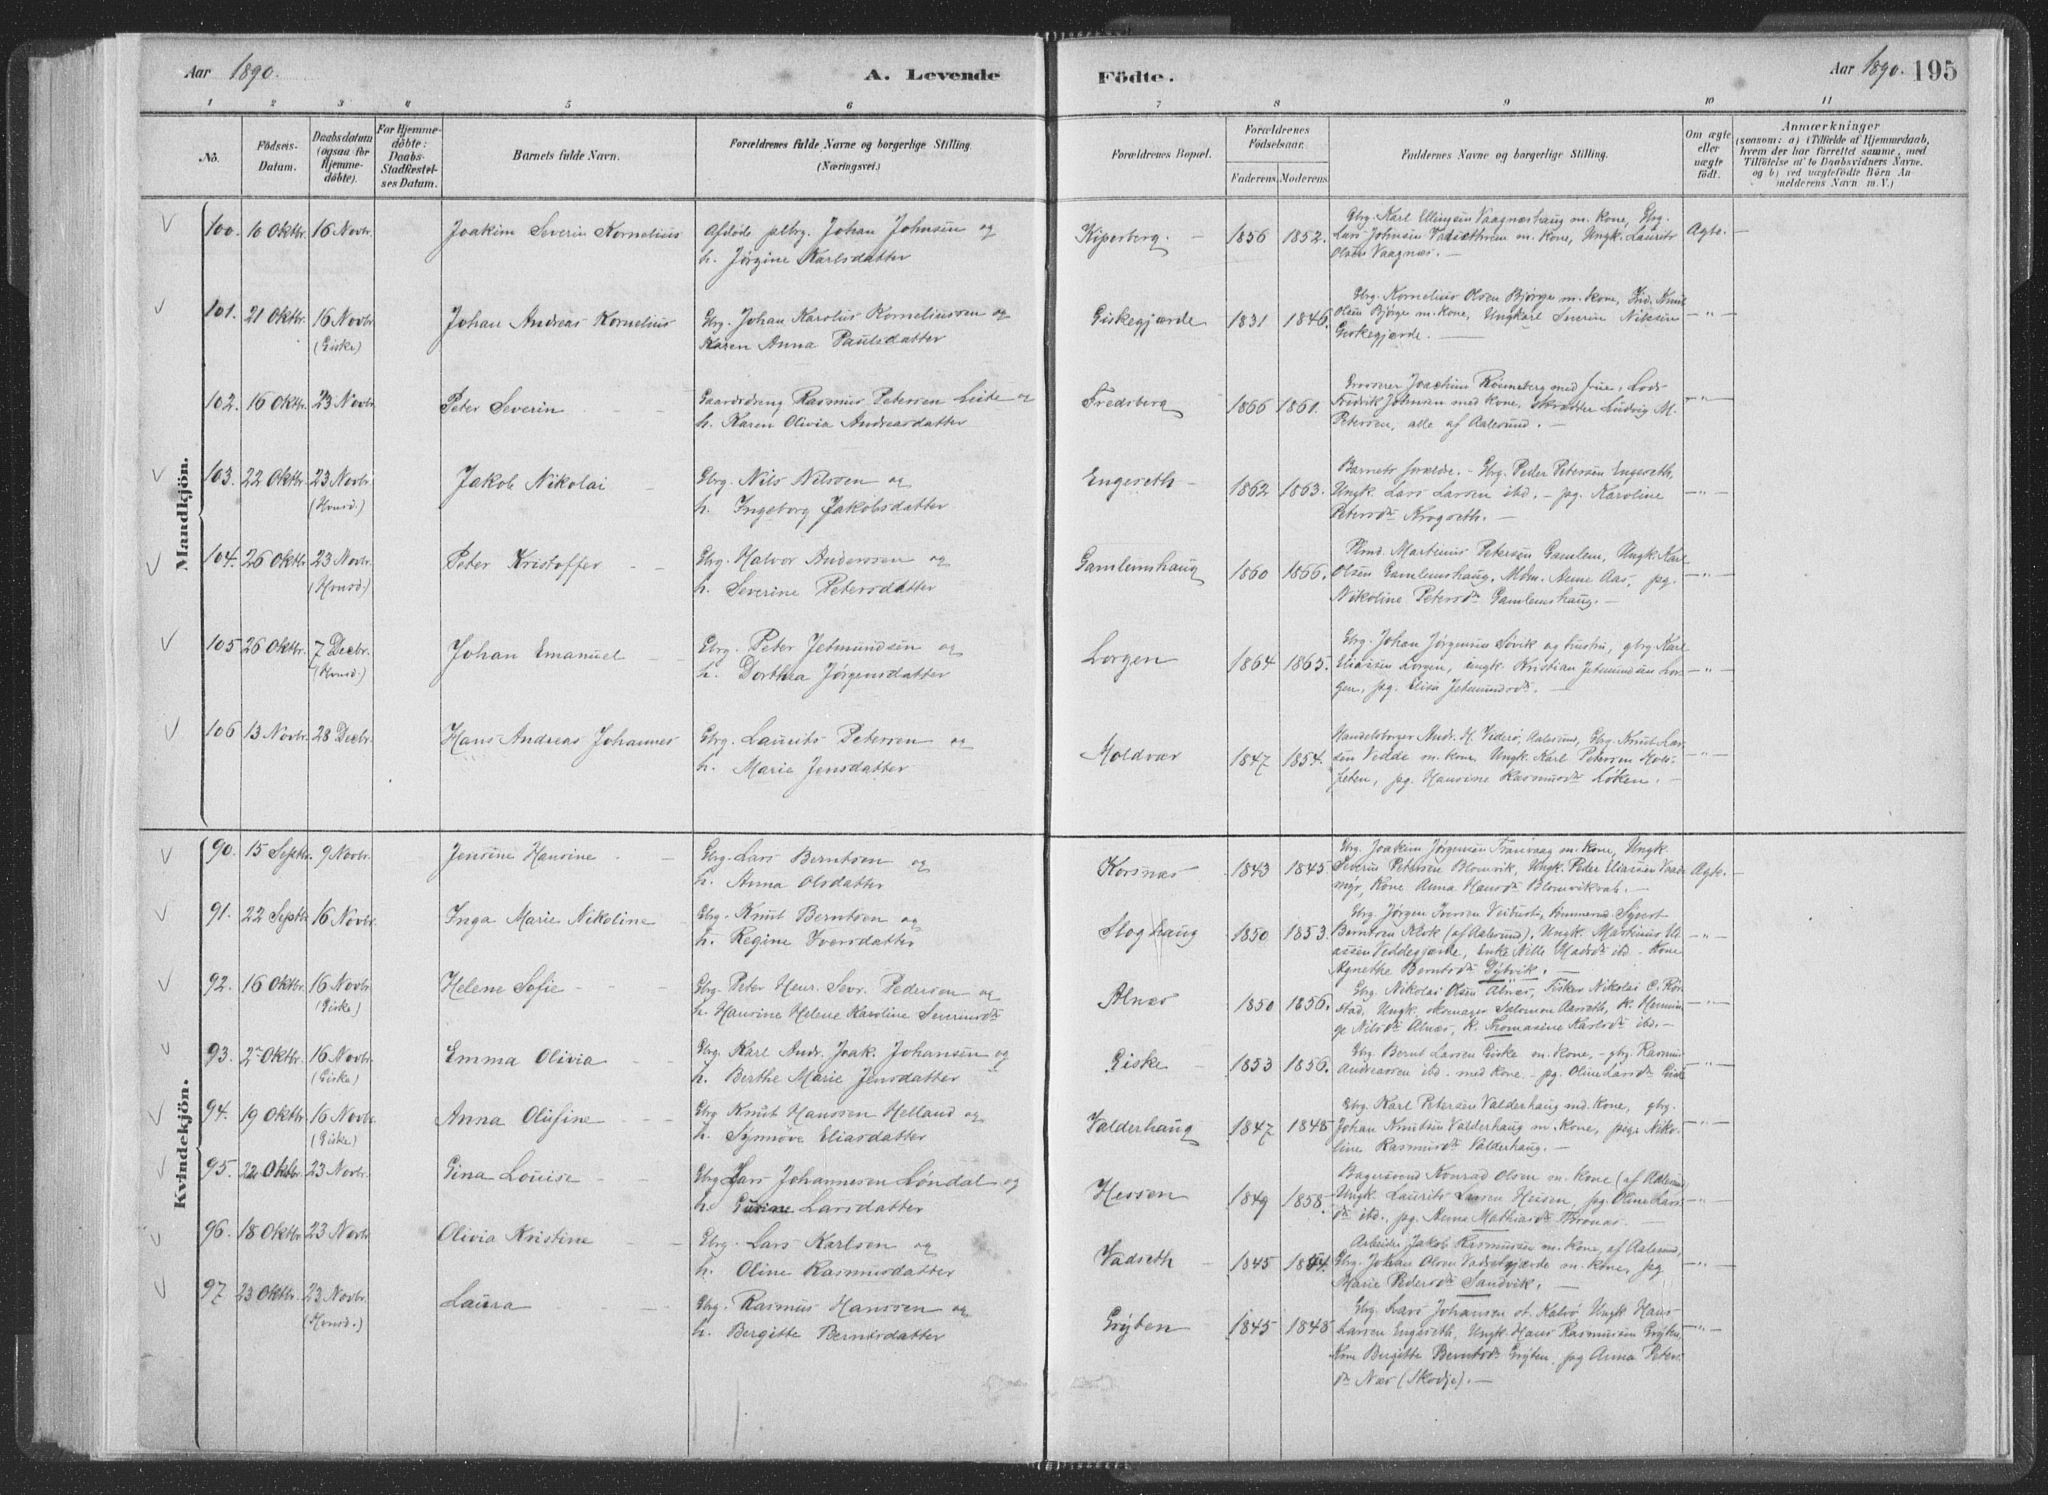 Aar 1890.
A. Levende
Födte.
Aar 1890. 195
1 2 3 4 5 6 7 8 9 10 11
No.
Födsels-
Datum.
Daabsdatum
(ogsaa for
Hjemme-
döbte).
For Hjemme-
döbte:
Daabs-
Stadfæstel-
ses Datum.
Barnets fulde Navn.
Forældrenes fulde Navne og borgerlige Stilling.
(Næringsvei.)
Forældrenes Bopæl.
Forældrenes
Födselsaar.
Faderens. Moderens.
Faddernes Navne og borgerlige Stilling.
Om ægte
eller
uægte
födt.
Anmærkninger
(saasom: a) i Tilfælde af Hjemmedaab,
hvem der har forrettet samme, med
Tilföielse af to Daabsvidners Navne.
og b) ved uægtefödte Börn An-
melderens Navn m. V.)
Mandkjön.
100. 10 Oktbr. 16 Novbr. Joakim Severin Kornelius Afdøde plbrg. Johan Johnsen og
h. Jørgine Karlsdatter
Kiperberg. 1856 1852.
Gbrg. Karl Ellingsen Vaagnæshaug m. Kone, Gbrg.
Lars Johnsen Vadsethrem m. Kone, Ungk. Laurits
Olsen Vaagnæs. —
Ægte. —
101. 21 Oktbr. 16 Novbr. Johan Andreas Kornelius Gbrg. Johan Karolus Korneliussen og
(Giske) Karen Anna Paulsdatter
Giskegjærde 1831 1846.
Gbrg. Kornelius Olsen Bjørge m. Kone, Ind. Knut
Olsen Bjørge m. Kone, Ungkarl Severin Nilsen
Giskegjærde. —
—"—
102. 16 Oktbr. 23 Novbr. Peter Severin Gaardsdreng Rasmus Petersen Leite og
h. Karen Olivia Andreasdatter
Fredsberg 1866 1861.
Grosserer Joachim Rønneberg med frue, Lods
Fredrik Johnsen med Kone, Skrædder Ludvig M.
Petersen, alle af Aalesund. —
—"—
103. 22 Oktbr. 23 Novbr. Jakob Nikolai Gbrg. Nils Nilssen og
(Hovsd.) h. Ingeborg Jakobsdatter
Engeseth 1862 1863.
Barnets forælde. - Gbrg. Peder Petersen Engeseth,
Ungk. Lars Larsen ibd. - pg. Karoline
Petersdtr Krogseth. —
—"—
104. 26 Oktbr. 23 Novbr. Peter Kristoffer Gbrg. Halvor Anderssen og
(Hovsd) h. Severine Petersdatter
Gamlemshaug 1860 1866.
Plmd. Martinus Petersen Gamlem, Ungk. Karl
Olsen Gamlemshaug, Mdm. Anne Aas, pg.
Nikoline Petersdtr Gamlemshaug. —
—"—
105 26 Oktbr. 7 Decbr. Johan Emanuel Gbrg. Peter Jetmundsen og
(Hovsd.) h. Dorthea Jørgensdatter
Lorgen 1864 1865.
Gbrg. Johan Jørgennus Søvik og hustru, gbrg Karl
Eliassen Lorgen, ungk. Kristian Jetmundsen Lor-
gen, pg. Elise Jetmundsdtr. —
—"—
106 13 Novbr. 28 Decbr. Hans Andreas Johannes Gbrg. Laurits Petersen og
h. Marie Jensdatter
Moldvær 1847 1854.
Handelsborger Andr. H. Viderø, Aalesund, Gbrg. Knut Lar-
sen Vedde m. Kone, Ungk. Karl Petersen Hols-
peten, pg. Hansine Rasmusdtr Løken. —
—"—
Kvindekjön.
90. 15 Septbr. 9 Novbr. Jensine Hansine Gbrg. Lars Berntsen og
h. Anna Olsdatter
Korsnæs 1843 1845.
Gbrg. Joakim Jørgensen Tranvaag m. Kone, Ungk.
Severin Petersen Blomvik, Ungk. Peter Eliassen Vaads-
myr, Kone Anna Hansdtr Blomvikvab. —
Ægte. —
91. 22 Septbr 16 Novbr. Inga Marie Nikoline Gbrg. Knut Berntsen og
h. Regine Iversdatter
Sloghaug 1850 1853.
Gbrg. Jørgen Iversen Veibust, Tømmermd. Sivert
Berntsen Klok (af Aalesund), Ungk. Martinus El-
iassen Veddegjærde, Enke Nille Madsdtr ibd. - Kone
Agnethe Berntsdtr Dybvik. —
—"—
92. 16 Oktbr. 16 Novbr. Helene Sofie Gbrg. Peter Henr. Sevr. Pedersen og
(Giske) h. Hansine Helene Karoline Severinsdtr
Alnæs 1850 1856.
Gbrg. Nikolai Olsen Alnæs, Fisker Nikolai C. Rør-
stad, Ungk. skomager Salomon Aarseth, K. Hennin-
ge Nilsdtr Alnæs, K. Thomasine Karlsdtr ibd. —
—"—
93. 2 Oktbr. 16 Novbr. Emma Olivia Gbrg. Karl Andr. Joak. Johansen og
(Giske) h. Berthe Marie Jensdatter
Giske 1853 1856.
Gbrg. Bernt Larsen Giske m. Kone, - gbrg. Rasmus
Andreassen ibd. med Kone. - pg. Oline Larsdtr Giske
—"—
94. 19 Oktbr. 16 Novbr. Anna Olufine Gbrg Knut Hanssen Helland og
(Giske) h. Synnøve Eliasdatter
Valderhaug 1847 1848
Gbrg. Karl Petersen Valderhaug md. Kone, gbrg.
Johan Knutsen Valderhaug m. Kone, pige Niko-
line Rasmusdtr Valderhaug. —
—"—
95. 22 Oktbr. 23 Novbr. Gina Louise Gbrg Lars Johannesen Løndal og
h. Gurine Larsdatter
Hessen 1849 1858.
Bagersvend Konrad Olsen m. Kone (af Aalesund)
Ungk. Laurits Larsen Hessen, pg. Oline Lars-
dtr ibd., pg. Anna Mathiasdtr Ibronæs. —
—"—
96. 18 Oktbr. 23 Novbr. Olivia Kristine Gbrg. Lars Karlsen og
h. Oline Rasmusdatter
Vadseth 1845 1854.
Arbeider Jakob Rasmussen m. Kone, af Aalesund,
Gbrg. Johan Olsen Vadsethgjærde m. Kone, pg
Marie Pedersdtr Sandvik. —
—"—
97 23 Oktbr. 23 Novbr. Laura Gbrg. Rasmus Hanssen og
(Hovsd.) h. Bergitte Berntsdatter
Grÿten 1845 1848
Gbrg. Lars Johansen st. Kalvø Ungk. Hans
Larsen Engeseth, Ungk. Hans Rasmussen Grÿten,
Kone Bergitte Berntsdtr Grÿten, pg Anna Peters-
dtr Nær (Skodje). —
—"—